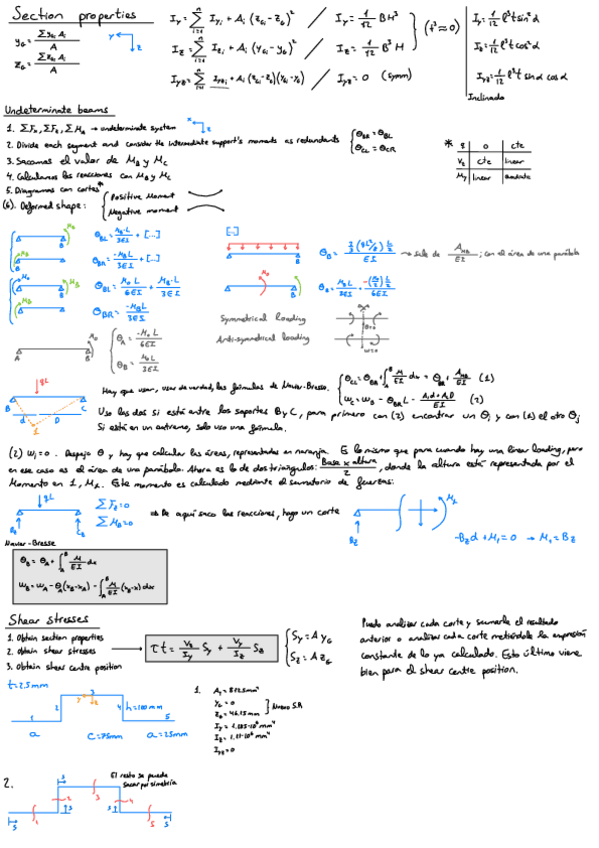 Section properties
y_G = Σ y_Gi A_i / A
z_G = Σ z_Gi A_i / A
y z
I_y = Σ I_yi + A_i (z_Gi - z_G)² / I_y = 1/12 B H³
I_z = Σ I_zi + A_i (y_Gi - y_G)² / I_z = 1/12 B³ H
I_yz = Σ I_yzi + A_i (z_Gi - z_G)(y_Gi - y_G) / I_yz = 0 (symm)
(t³ ≈ 0)
I_y = 1/12 l³ t sin² α
I_z = 1/12 l³ t cos² α
I_yz = 1/12 l³ t sin α cos α
Inclinado
Undeterminate beams
1. ΣF_x, ΣF_z, ΣM_A → undeterminate system
2. Divide each segment and consider the intermediate support's moments as redundants { θ_BR = θ_BL
θ_CL = θ_CR
3. Sacamos el valor de M_B y M_C
4. Calculamos las reacciones con M_B y M_C
5. Diagramas con cortes*
(6). Deformed shape: { Positive Moment
Negative moment
* q 0 cte
V_z cte linear
M_y linear
θ_BL = M_B·L / 3EI + [...]
θ_BR = -M_B L / 3EI + [...]
θ_BL = M_A L / 6EI + M_B·L / 3EI
θ_BR = -M_B L / 3EI
[...]
→ sale de A_MB / EI ; con el área de una parábola
Symmetrical loading
Anti-symmetrical loading
θ_A = -M_0 L / 6EI
θ_B = M_0 L / 3EI
qL
B C
d D
1
Hay que usar, usar de verdad, las fórmulas de Navier-Bresse.
(1)
(2)
Uso las dos si está entre los soportes B y C, para primero con (2) encontrar un θ_i y con (1) el otro θ_j
Si está en un extremo, solo uso una fórmula.
(2) w_i = 0. Despejo θ y hay que calcular las áreas, representadas en naranja. Es lo mismo que para cuando hay una linear loading, pero
en ese caso es el área de una parábola. Ahora es la de dos triángulos: Base x altura / 2, donde la altura está representada por el
Momento en 1, M_1. Este momento es calculado mediante el sumatorio de fuerzas:
qL
B_z C_z
ΣF_z = 0
ΣM_B = 0
⇒ De aquí saco las reacciones, hago un corte
B_z M_1
-B_z d + M_1 = 0 → M_1 = B_z
Navier-Bresse
θ_B = θ_A + ∫_A^B M/EI dx
w_B = w_A - θ_A (x_B - x_A) - ∫_A^B M/EI (x_B - x) dx
Shear stresses
1. Obtain section properties
2. Obtain shear stresses
3. Obtain shear centre position
τt = V_z / I_y S_y + V_y / I_z S_z
S_y = A y_G
S_z = A z_G
Puedo analizar cada corte y sumarle el resultado
anterior o analizar cada corte metiéndole la expresión
constante de lo ya calculado. Esto último viene
bien para el shear centre position.
t = 2.5mm
1 2 3 4 5
y z
h = 100mm
a c = 75mm a = 25mm
1. A_T = 812.5mm²
y_G = 0
z_G = 46.15mm
I_yz = 0
2.
El resto se puede
sacar por simetría
s s s s s
1 2 3 4 5